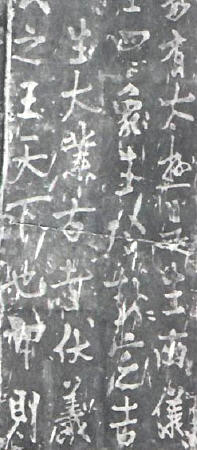 有太極是生兩儀
四象生八卦定吉
生大業古者伏羲
之王天下也仰則